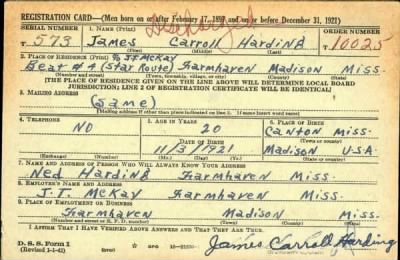 REGISTRATION CARD—(Men born on or after February 17, 1897 and on or before December 31, 1921)
SERIAL NUMBER 1. NAME (Print) ORDER NUMBER
T 573 James Carroll Harding 10025
(First) (Middle) (Last)
2. PLACE OF RESIDENCE (Print) % J.T. McKay
Beat #4 (Star Route) Farmhaven Madison Miss.
(Number and street) (Town, township, village, or city) (County) (State)
[THE PLACE OF RESIDENCE GIVEN ON THE LINE ABOVE WILL DETERMINE LOCAL BOARD
JURISDICTION; LINE 2 OF REGISTRATION CERTIFICATE WILL BE IDENTICAL]
3. MAILING ADDRESS
(Same)
[Mailing address if other than place indicated on line 2. If same insert word same]
4. TELEPHONE 5. AGE IN YEARS 6. PLACE OF BIRTH
NO 20 Canton Miss.
DATE OF BIRTH (Town or county)
11/3 1921 Madison U.S.A.
(Exchange) (Number) (Mo.) (Day) (Yr.) (State or country)
7. NAME AND ADDRESS OF PERSON WHO WILL ALWAYS KNOW YOUR ADDRESS
Ned Harding Farmhaven Miss.
8. EMPLOYER'S NAME AND ADDRESS
J.T. McKay Farmhaven Miss.
9. PLACE OF EMPLOYMENT OR BUSINESS
Farmhaven Madison Miss.
(Number and street or R. F. D. number) (Town) (County) (State)
I AFFIRM THAT I HAVE VERIFIED ABOVE ANSWERS AND THAT THEY ARE TRUE.
D. S. S. Form 1
(Revised 1-1-42) (over)
James Carroll Harding